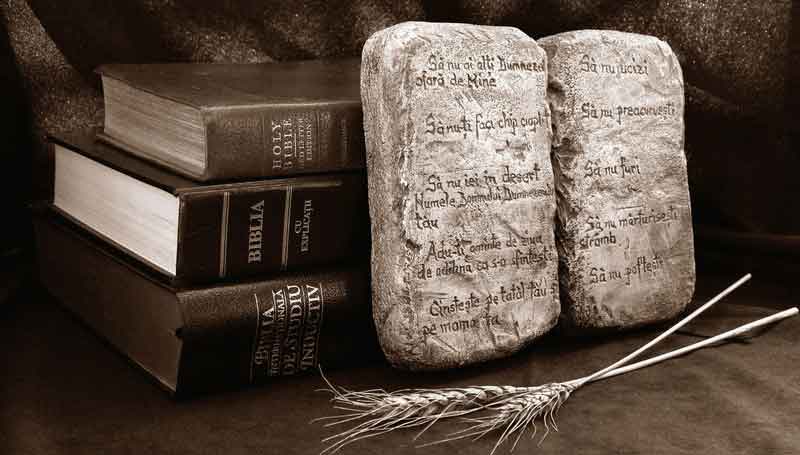 HOLY
BIBLE
RED LETTER
EDITION
BIBLIA
CU
EXPLICAȚII
BIBLIA
DE STUDIU
INDUCTIV
Să nu ai alți Dumnezei
afară de Mine
Să nu-ți faci chip cioplit
Să nu iei în deșert
Numele Domnului Dumnezeului
tău
Adu-ți aminte de ziua
de odihnă ca s-o sfințești
Cinstește pe tatăl tău și
pe mama ta
Să nu ucizi
Să nu preacurvești
Să nu furi
Să nu mărturisești
strâmb.
Să nu poftești